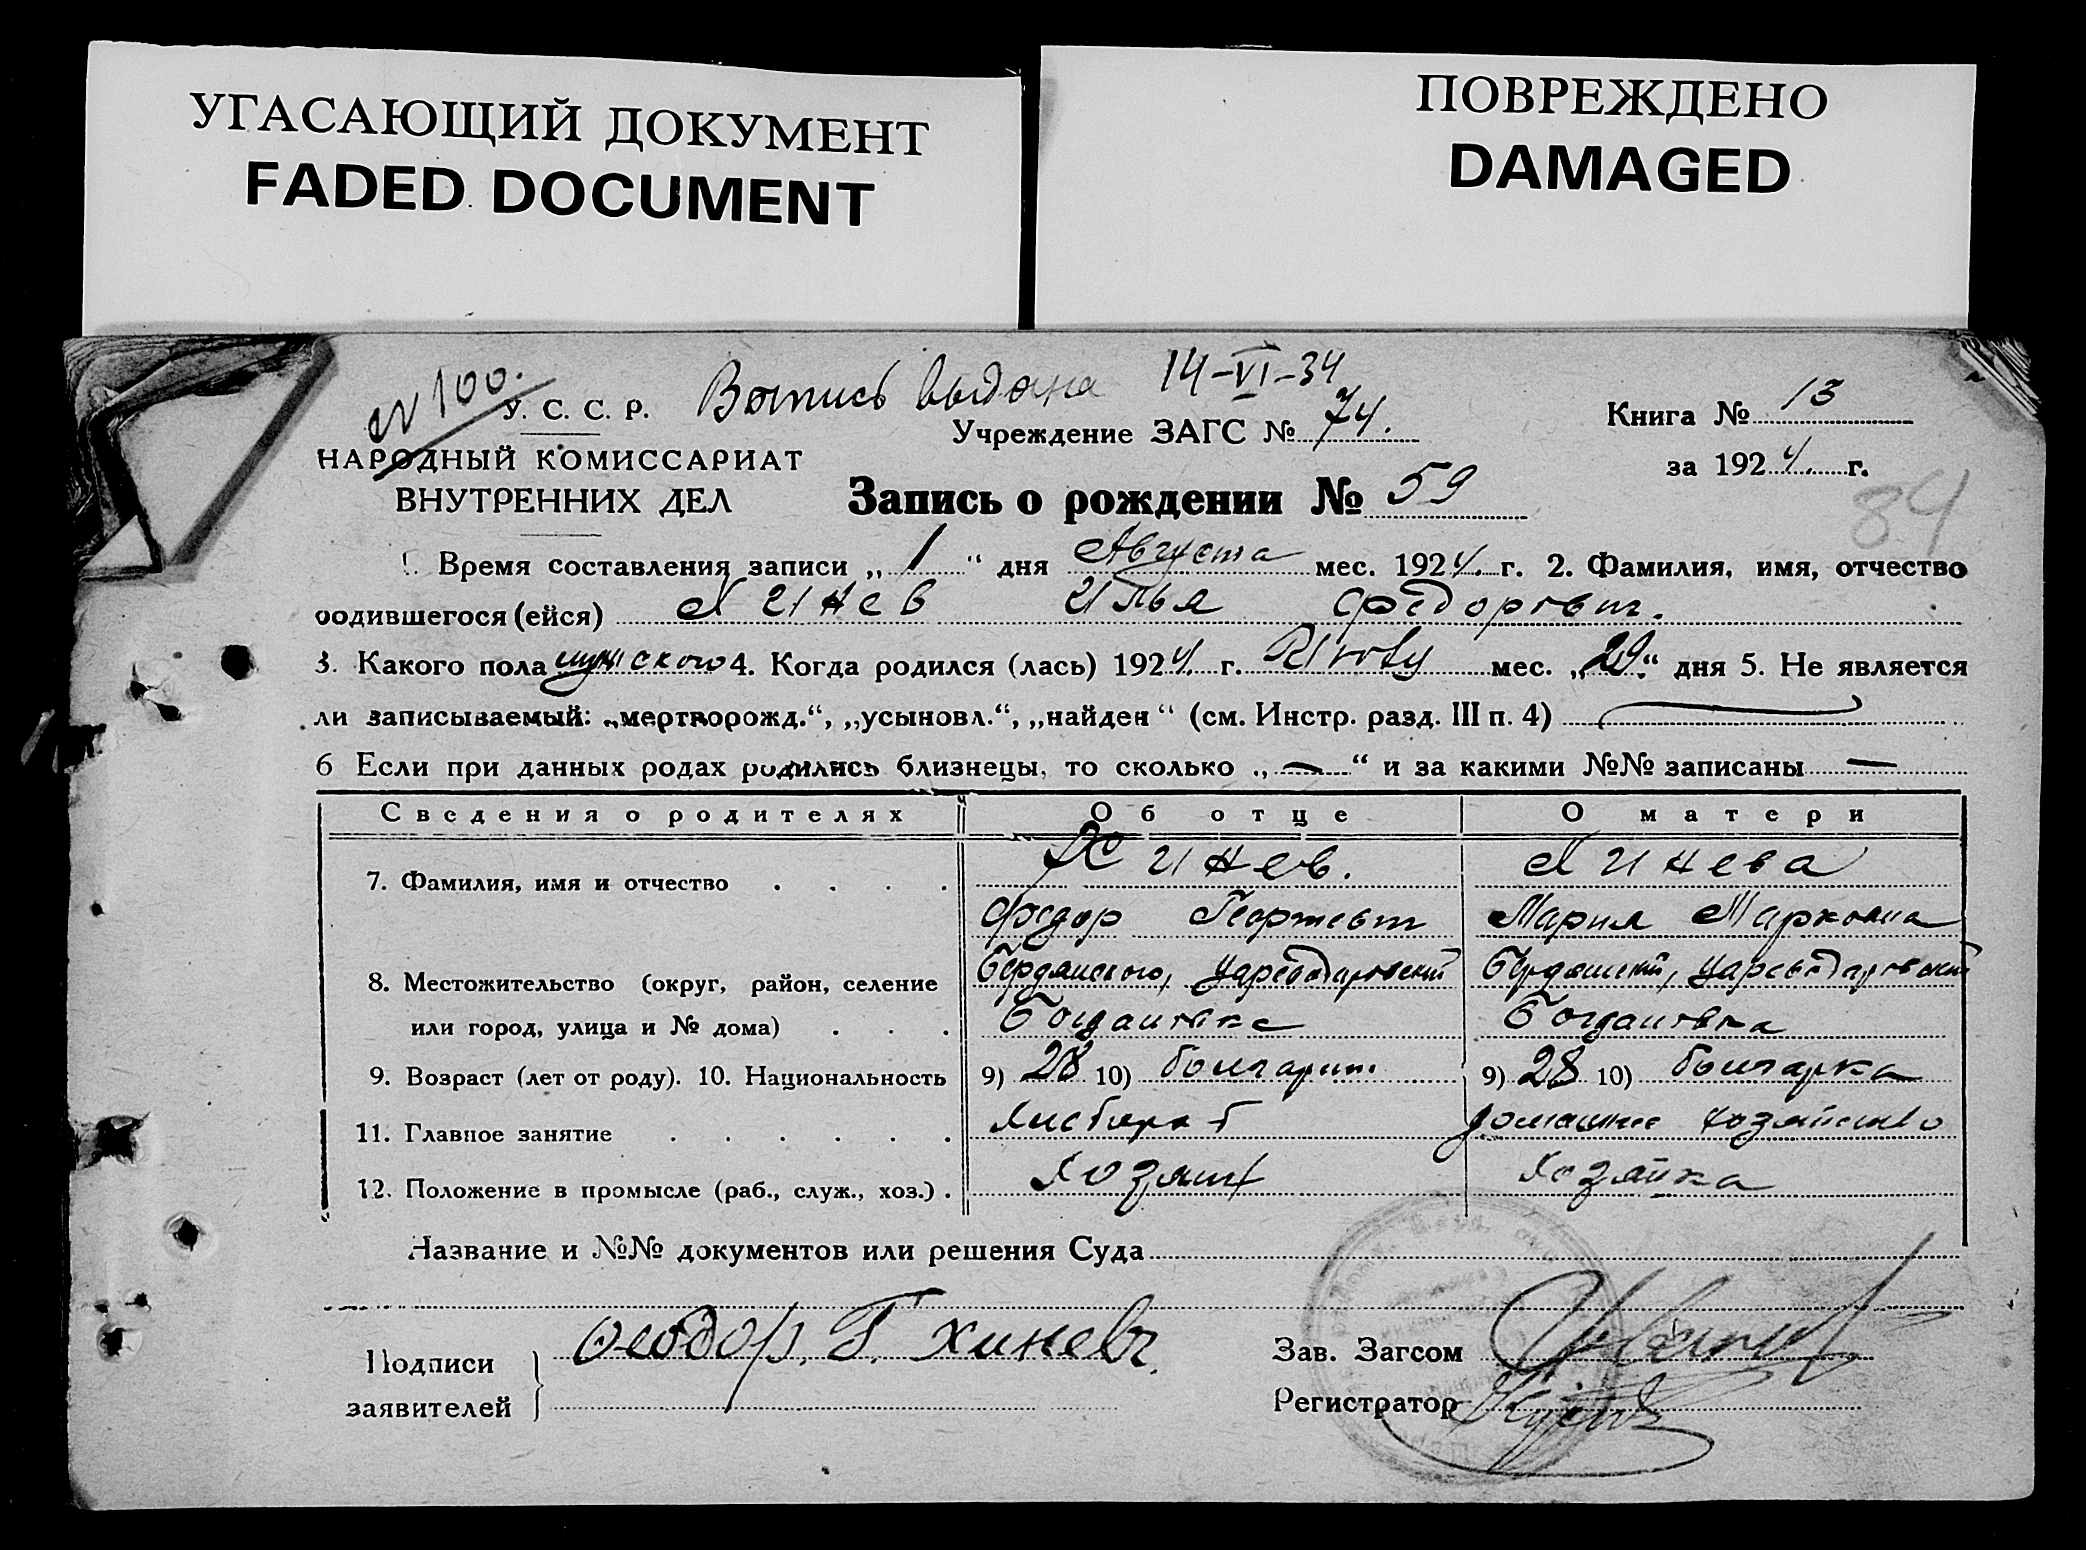 УГАСАЮЩИЙ ДОКУМЕНТ
FADED DOCUMENT
ПОВРЕЖДЕНО
DAMAGED
№ 100.
У. С. С. Р.
Выпись выдана 14-VI-34
НАРОДНЫЙ КОМИССАРИАТ
ВНУТРЕННИХ ДЕЛ
Учреждение ЗАГС № 74.
Книга № 13
за 1924 г.
84
Запись о рождении № 59
Время составления записи „ 1 “ дня Августа мес. 1924. г. 2. Фамилия, имя, отчество
родившегося (ейся) Хинев Илья Федорович.
3. Какого пола мужского 4. Когда родился (лась) 1924 г. мес. „29.“ дня 5. Не является
ли записываемый: „мертворожд.“, „усыновл.“, „найден“ (см. Инстр. разд. III п. 4)
6 Если при данных родах родились близнецы, то сколько „ — “ и за какими №№ записаны —
Сведения о родителях Об отце О матери
7. Фамилия, имя и отчество Хинев. Хинева
Федор Георгевич Мария Марковна
8. Местожительство (округ, район, селение Бердянского, Цареводаровский Бердянский, Цареводаровский
или город, улица и № дома) Богдановка Богдановка
9. Возраст (лет от роду). 10. Национальность 9) 28 10) болгарин. 9) 28 10) болгарка
11. Главное занятие Хлебороб домашнее хозяйство
12. Положение в промысле (раб., служ., хоз.) Хозяин Хозяйка
Название и №№ документов или решения Суда
Подписи
заявителей
Феодор. Г. Хиневъ.
Зав. Загсом
Регистратор